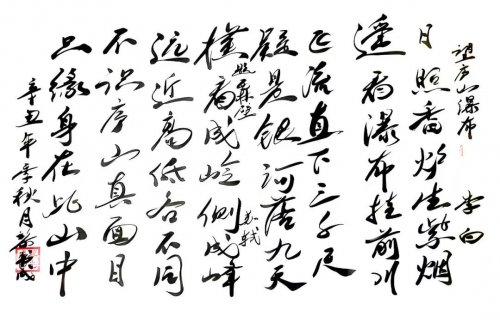 望庐山瀑布
李白
日照香炉生紫烟
遥看瀑布挂前川
飞流直下三千尺
疑是银河落九天
苏轼
横看成岭侧成峰
远近高低各不同
不识庐山真面目
只缘身在此山中
辛丑年季秋月